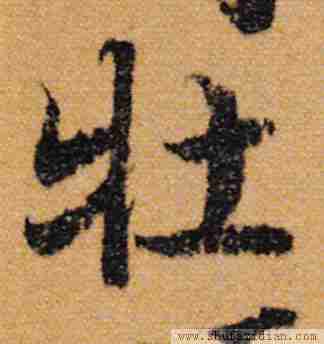 壯
www.shufazidian.com